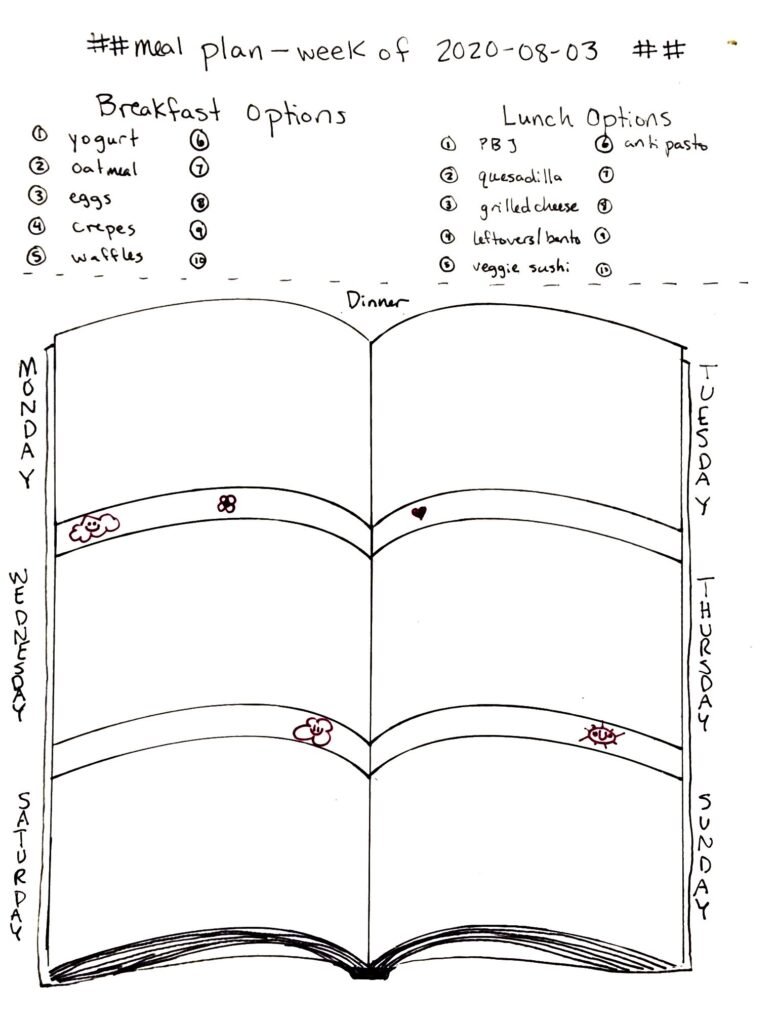 ##meal plan - week of 2020-08-03 ##
Breakfast Options
① yogurt ⑥
② oatmeal ⑦
③ eggs ⑧
④ crepes ⑨
⑤ waffles ⑩
Lunch Options
① PBJ ⑥ antipasto
② quesadilla ⑦
③ grilled cheese ⑧
④ leftovers/bento ⑨
⑤ veggie sushi ⑩
Dinner
MONDAY
TUESDAY
WEDNESDAY
THURSDAY
SATURDAY
SUNDAY